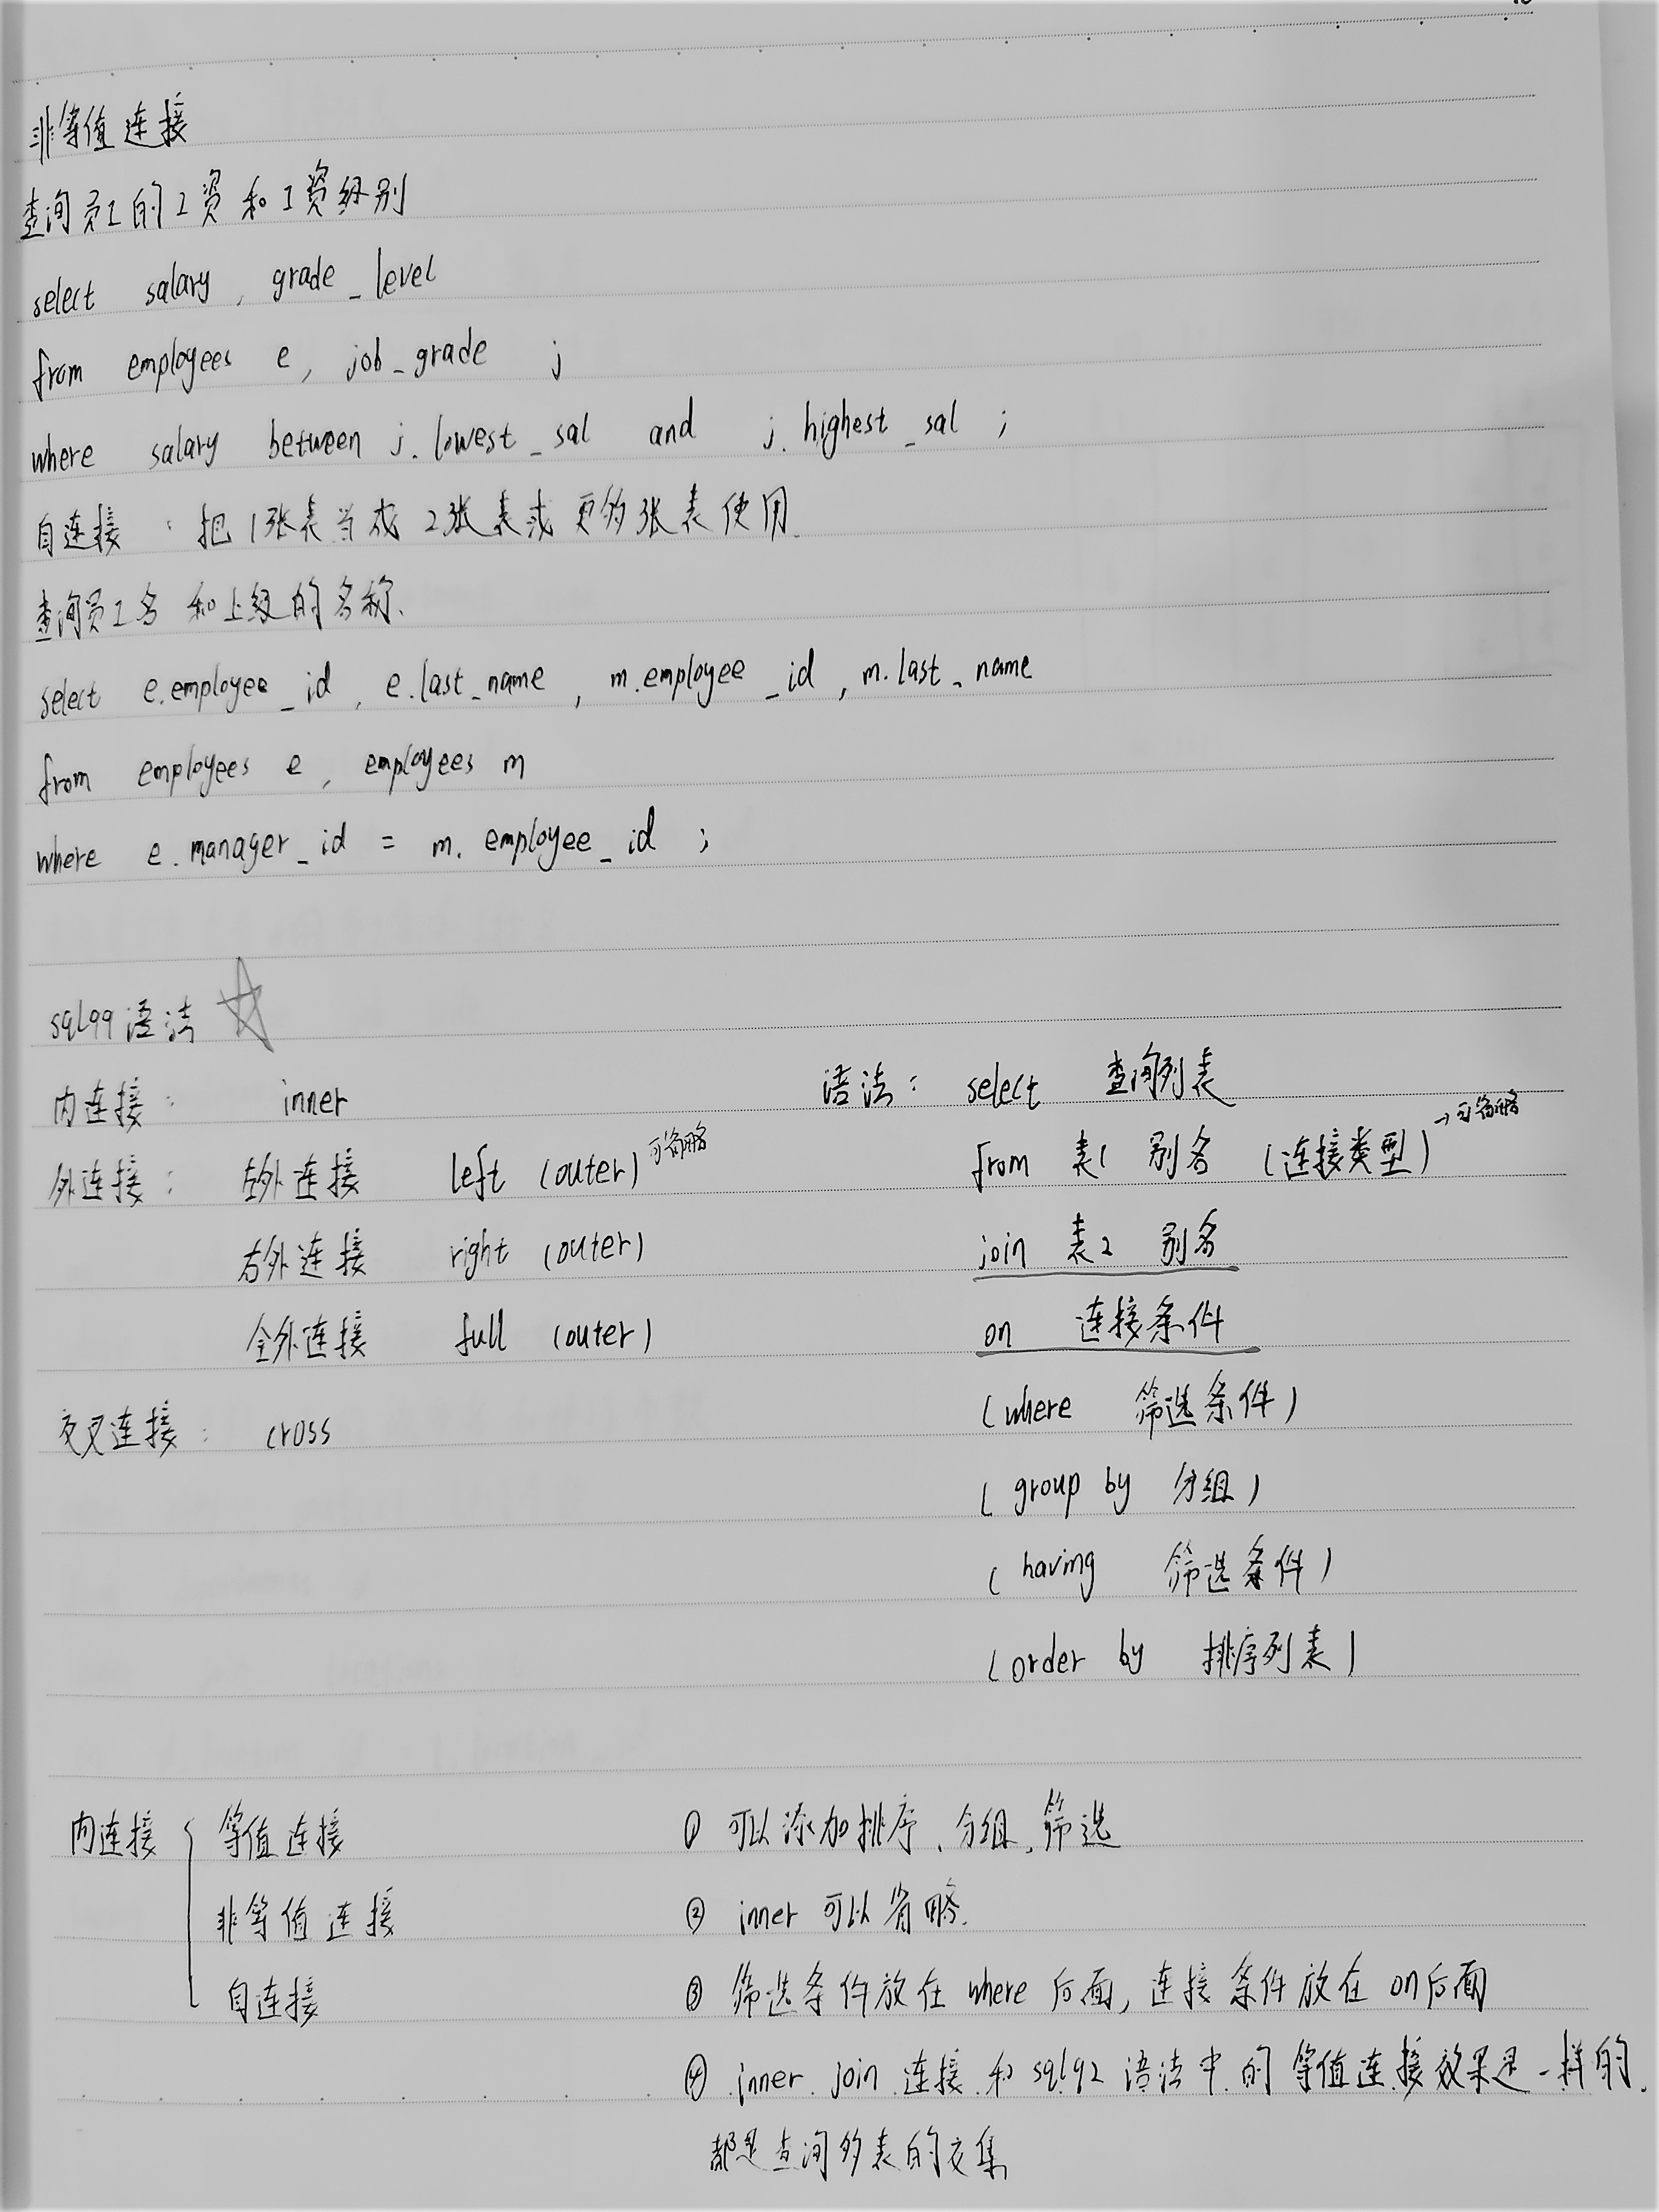 非等值连接
查询员工的工资和工资级别
select salary, grade_level
from employees e, job_grade j
where salary between j.lowest_sal and j.highest_sal ;
自连接 : 把1张表当成2张表或更多张表使用.
查询员工名和上级的名称.
select e.employee_id, e.last_name, m.employee_id, m.last_name
from employees e, employees m
where e.manager_id = m.employee_id ;
sql99语法
内连接 : inner
外连接 : 左外连接 left (outer) 可省略
右外连接 right (outer)
全外连接 full (outer)
交叉连接 : cross
语法 : select 查询列表
from 表1 别名 (连接类型) →可省略
join 表2 别名
on 连接条件
(where 筛选条件)
(group by 分组)
(having 筛选条件)
(order by 排序列表)
内连接 { 等值连接
非等值连接
自连接
① 可以添加排序、分组、筛选
② inner 可以省略.
③ 筛选条件放在 where 后面, 连接条件放在 on后面
④ inner join 连接和 sql92 语法中的等值连接效果是一样的.
都是查询多表的交集